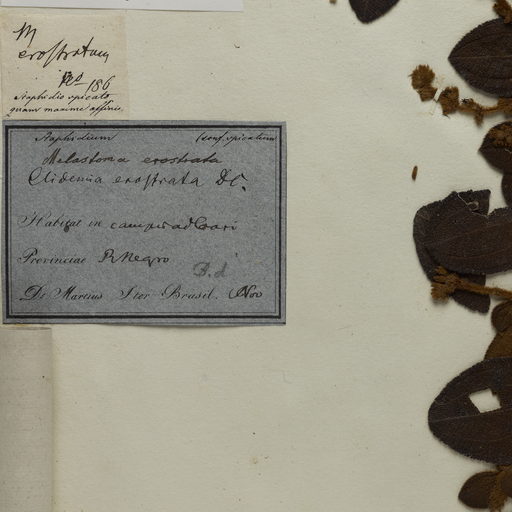 M
erostratum
No 186
Staphidio spicato
quam maxime affinis.
Staphidium (conf. spicatum
Melastoma erostrata
Clidemia erostrata DC.
Habitat in campis ad Coari
Provinciae R Negro
B. d.
Dr Martius Iter Brasil. Nov